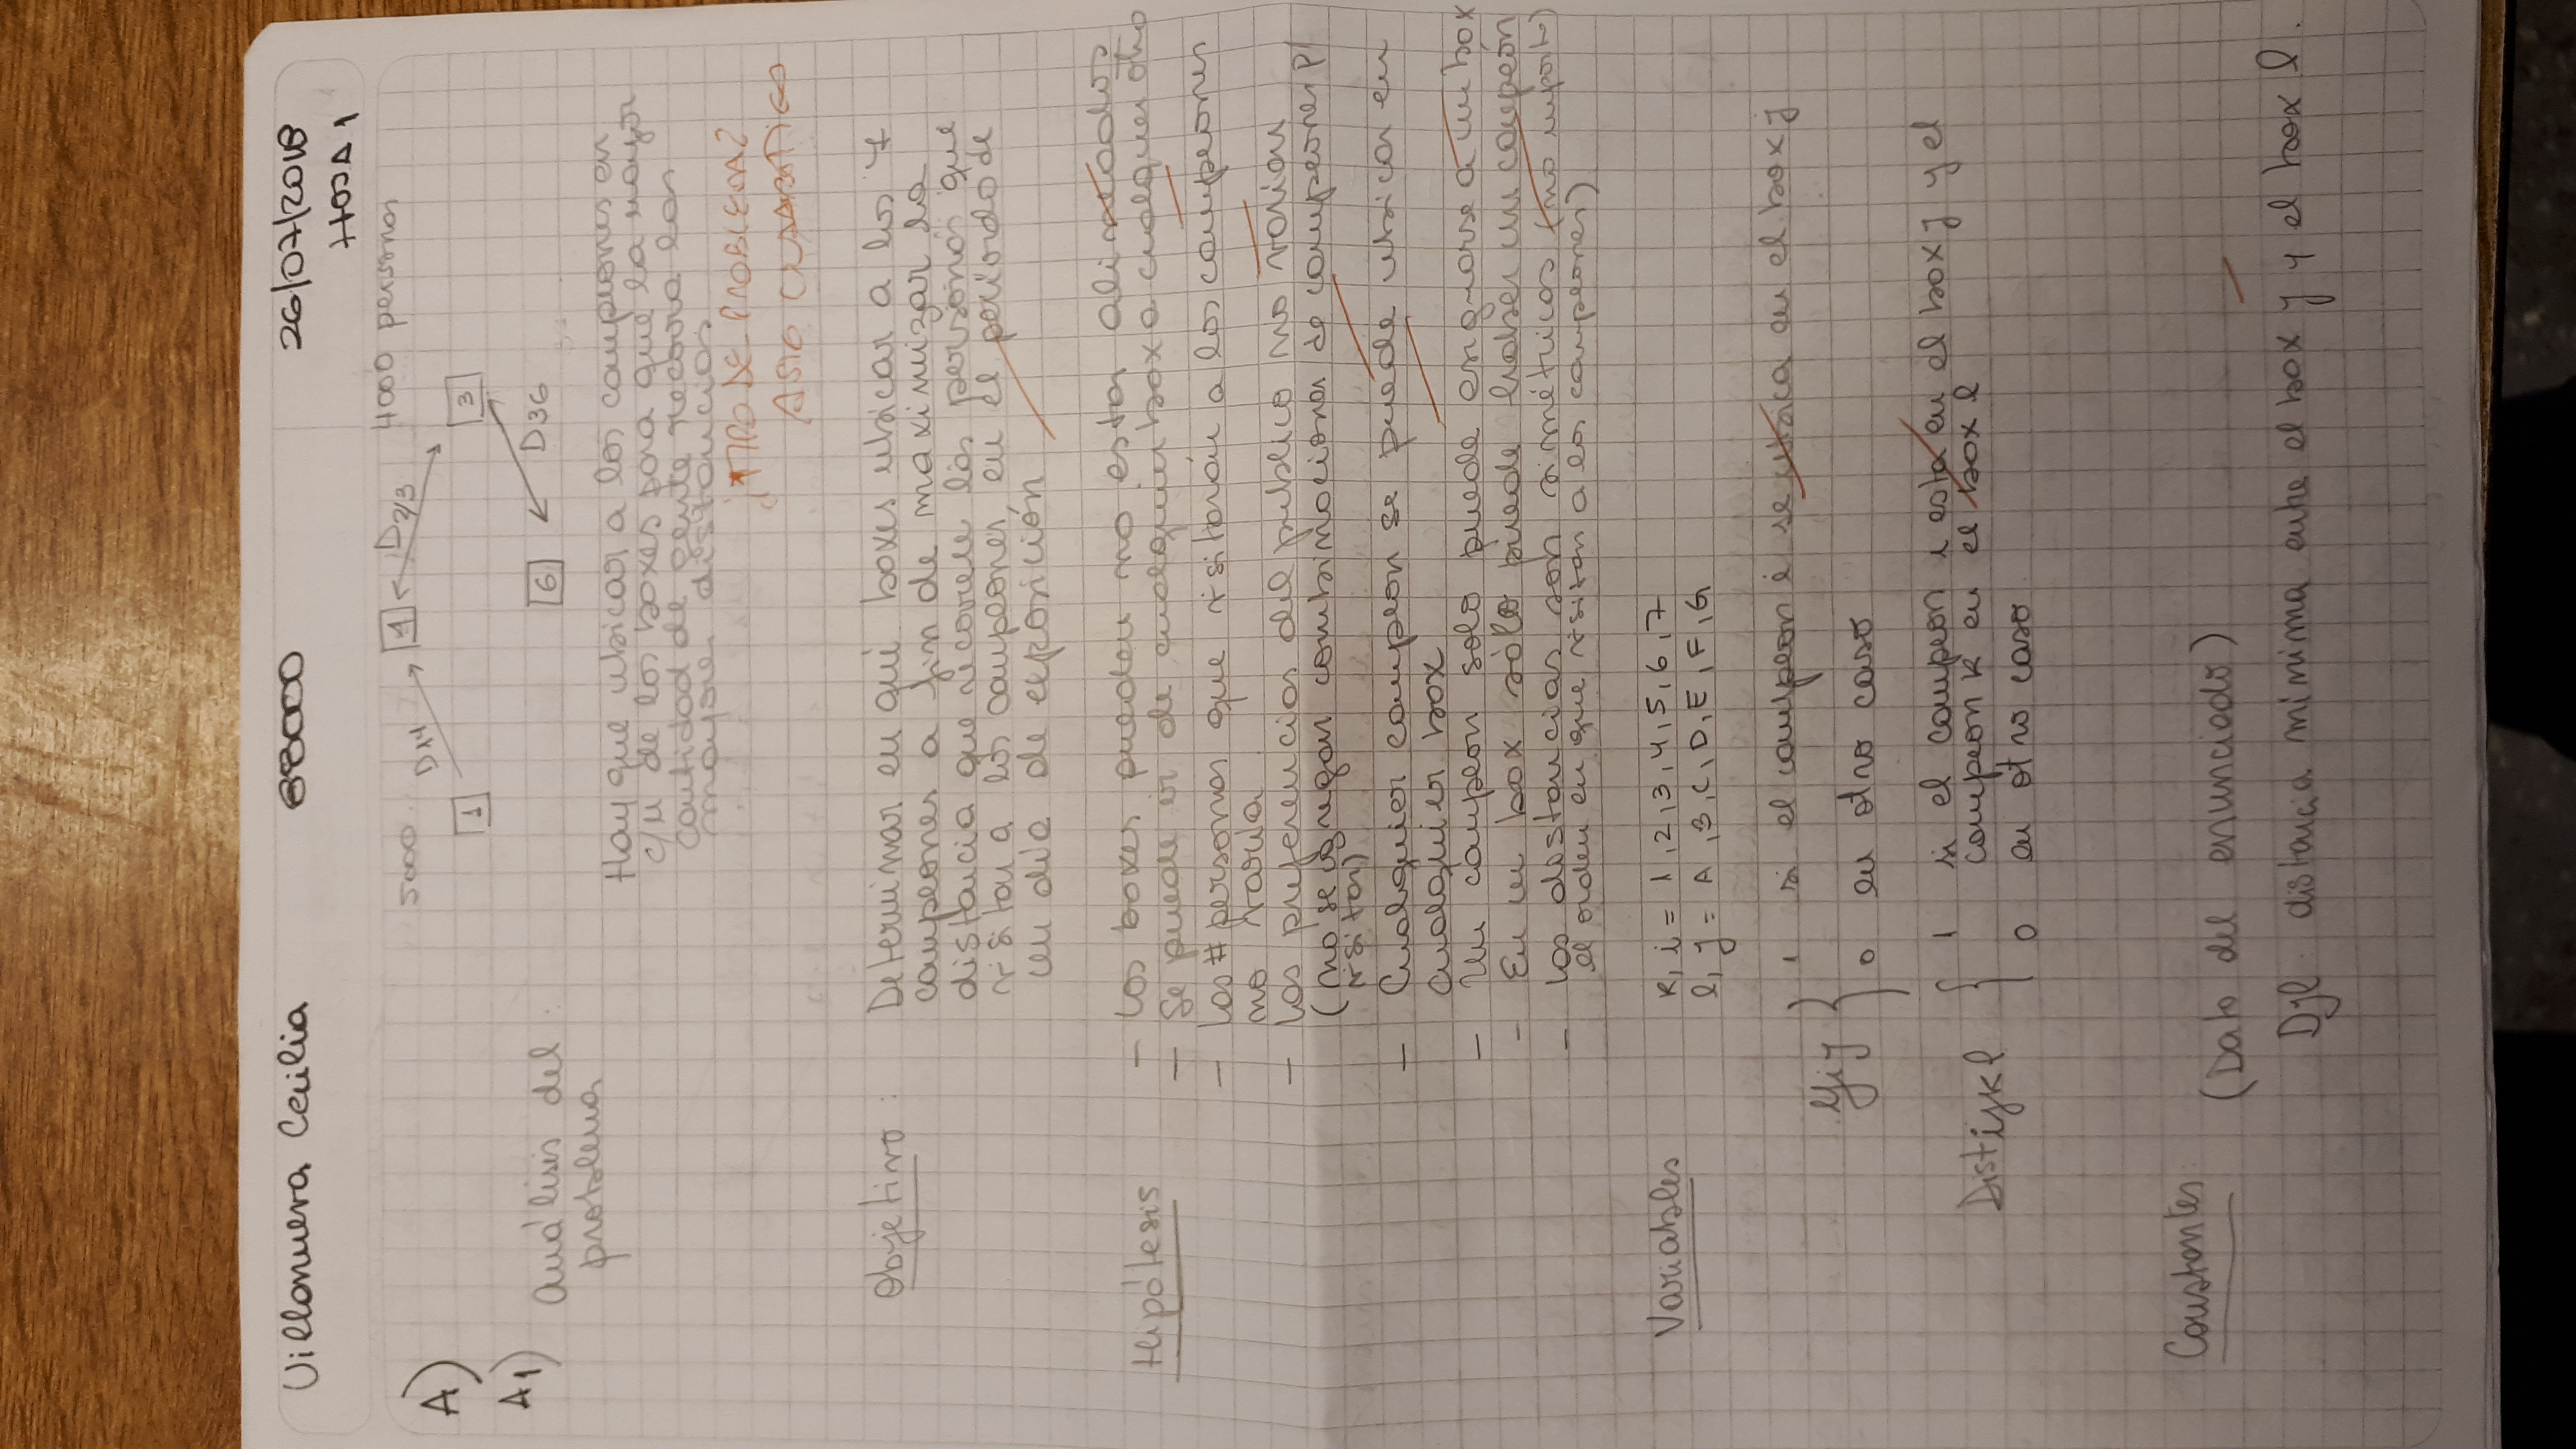 Villanueva Cecilia 88000 26/07/2018
HOJA 1
A)
5000 D14 1 D2/3 4000 personas
1 3
A1)
6 D36
Análisis del :
problema
Hay que ubicar a los campeones en
c/u de los boxes para que la mayor
cantidad de gente recorra las
mayores distancias
¿TIPO DE PROBLEMA?
ASIG CUADRÁTICA
Objetivo : Determinar en qué boxes ubicar a los 7
campeones a fin de maximizar la
distancia que recorren las personas que
visitan a los campeones, en el período de
un día de exposición
Hipótesis - Los boxes pueden no estar alineados
- Se puede ir de cualquier box a cualquier otro
- Las # personas que visitarán a los campeones
no varía
- Las preferencias del público no varían
(no se agregan combinaciones de campeones p/
visitar)
- Cualquier campeon se puede ubicar en
cualquier box
- Un campeón solo puede asignarse a un box
- En un box sólo puede haber un campeón
- Las distancias son simétricas (no importa
el orden en que visitan a los campeones)
Variables k, i = 1, 2, 3, 4, 5, 6, 7
l, j = A, B, C, D, E, F, G
Yij { 1 si el campeon i se ubica en el box j
0 en otro caso
Distijkl { 1 si el campeon i esta en el box j y el
campeon k en el box l
0 en otro caso
Constantes
(Dato del enunciado)
Djl: distancia minima entre el box j y el box l.